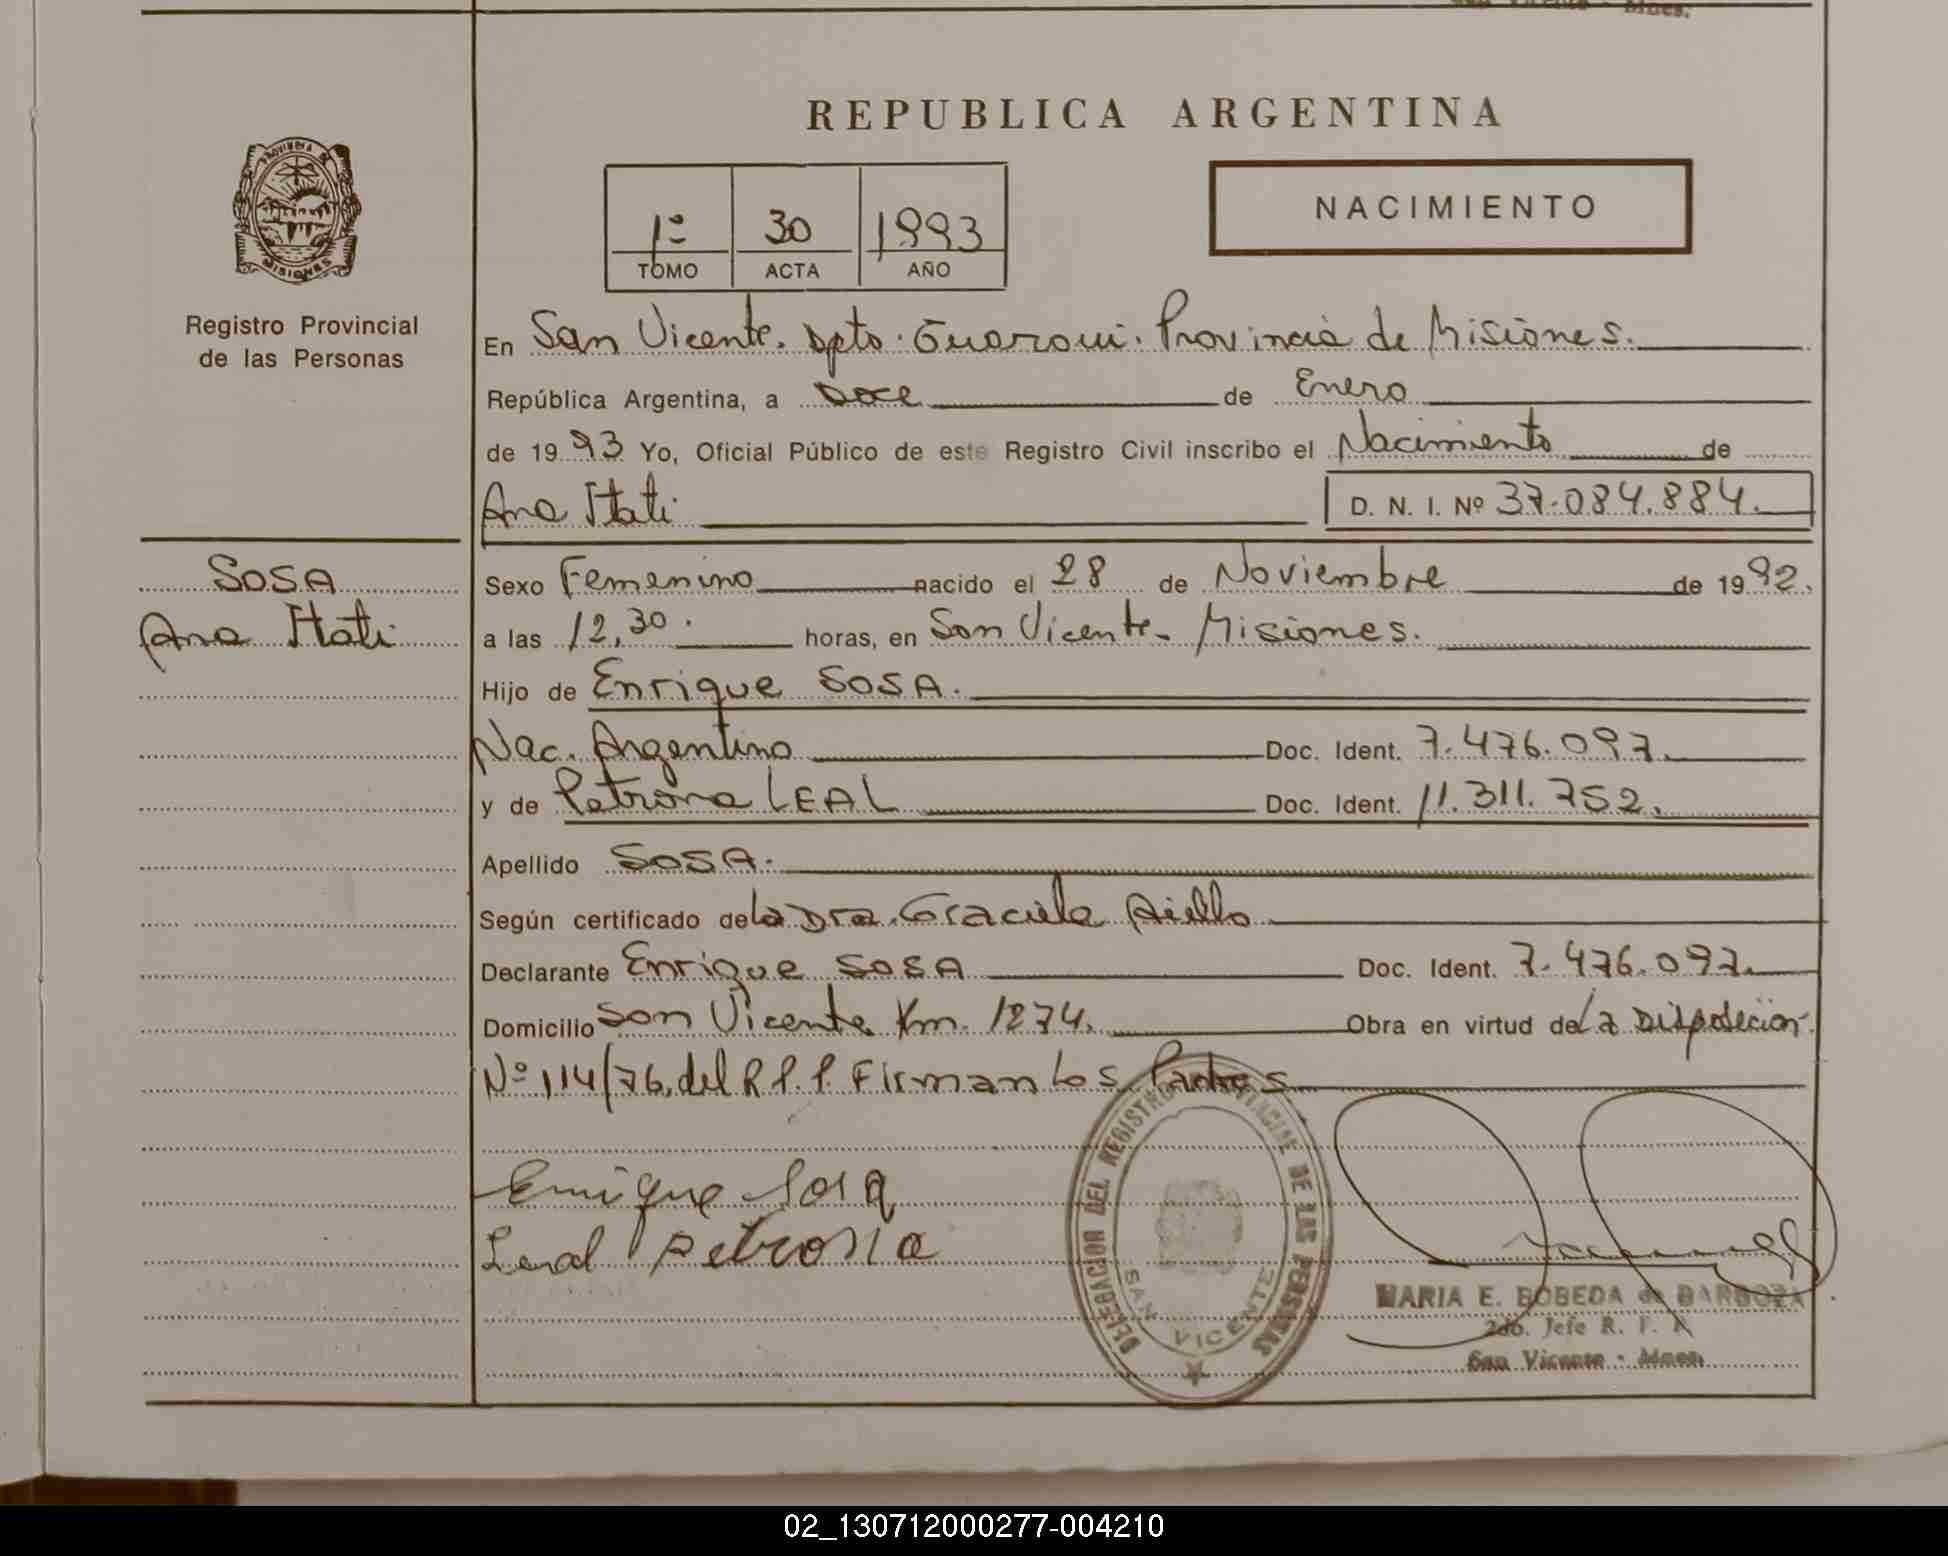 REPUBLICA ARGENTINA
PROVINCIA DE
MISIONES
Registro Provincial
de las Personas
1º 30 1993
TOMO ACTA AÑO
NACIMIENTO
En San Vicente. Dpto. Guarani. Provincia de Misiones.
República Argentina, a Doce de Enero
de 1993 Yo, Oficial Público de este Registro Civil inscribo el Nacimiento de
Ana Itati D. N. I. Nº 37.084.884.
SOSA
Ana Itati
Sexo Femenino nacido el 28 de Noviembre de 1992.
a las 12,30. horas, en San Vicente - Misiones.
Hijo de Enrique SOSA.
Nac. Argentino Doc. Ident. 7.476.097.
y de Petrona LEAL Doc. Ident. 11.311.752.
Apellido SOSA.
Según certificado de La Dra. Graciela Aiello
Declarante Enrique SOSA Doc. Ident. 7.476.097.
Domicilio San Vicente Km. 1274. Obra en virtud de La Disposicion
Nº 114/76, del R.P.P. Firman los Padres
Enrique Sosa
Leal Petrona
DELEGACION DEL REGISTRO PROVINCIAL DE LAS PERSONAS
SAN VICENTE
MARIA E. BOBEDA de BARBOZA
2do. Jefe R. P. P.
San Vicente - Mnes.
02_130712000277-004210